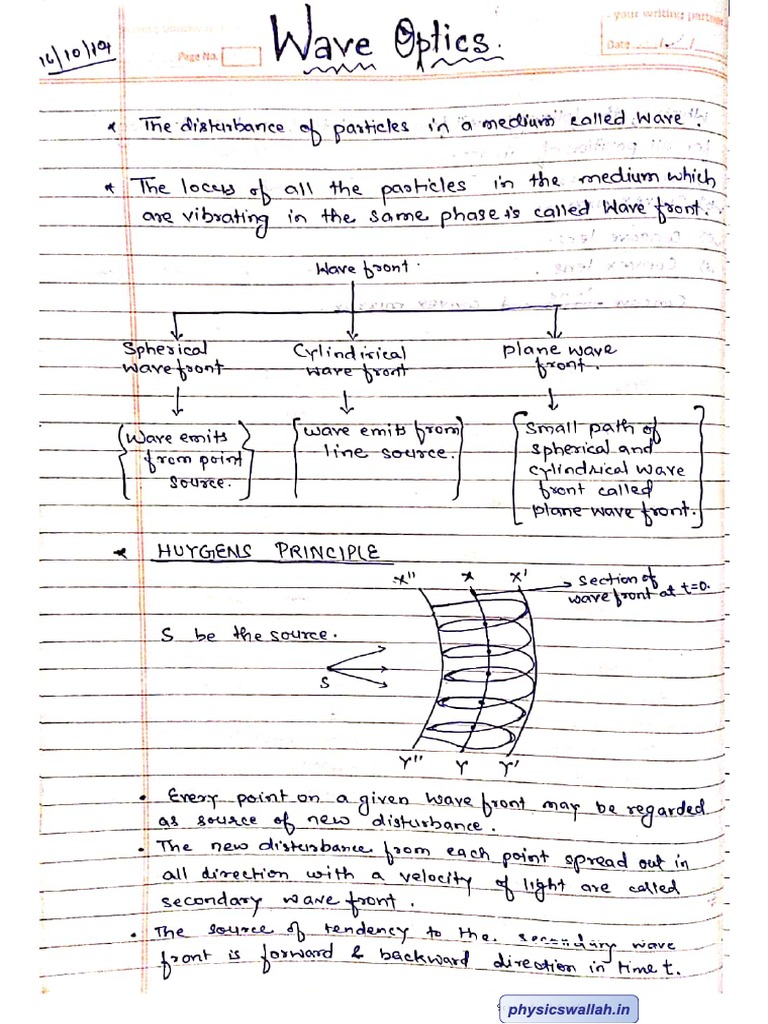 16/10/19
Page No.
Wave Optics.
- your writing partner
Date
* The disturbance of particles in a medium called wave.
* The locus of all the particles in the medium which
are vibrating in the same phase is called Wave front.
Wave front.
Spherical
wave front
Cylindirical
wave front
plane wave
front.
Wave emits
from point
source.
wave emits from
line source.
Small path of
spherical and
cylindrical wave
front called
plane wave front.
* HUYGENS PRINCIPLE
X" X X'
Section of
wave front at t=0.
S be the source.
S
Y" Y Y'
• Every point on a given wave front may be regarded
as source of new disturbance.
• The new disturbance from each point spread out in
all direction with a velocity of light are called
secondary wave front.
• The source of tendency to the secondary wave
front is forward & backward direction in time t.
physicswallah.in